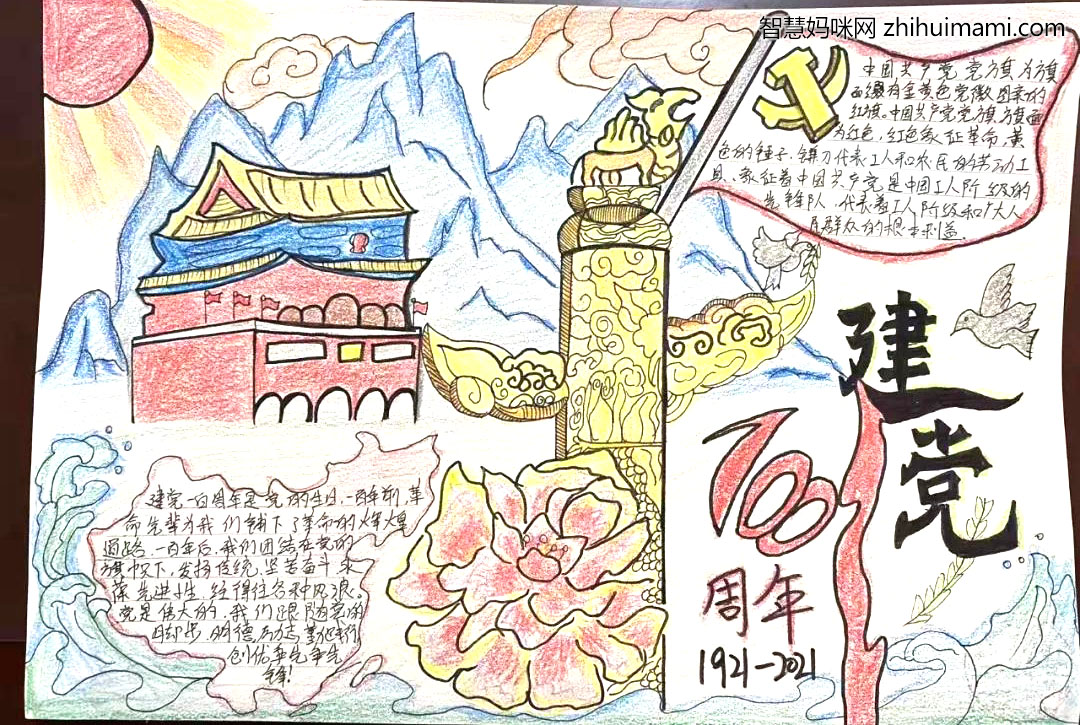 智慧妈咪网 zhihuimami.com
中国共产党党旗为旗
面缀有金黄色党徽图案的
红旗。中国共产党党旗旗面
为红色,红色象征革命,黄
色的锤子、镰刀代表工人和农民的劳动工
具,象征着中国共产党是中国工人阶级的
先锋队,代表着工人阶级和广大人
民群众的根本利益。
建党
100
周年
1921-2021
建党一百周年是党的生日,一百年前,革
命先辈为我们铺下了革命的辉煌
道路,一百年后,我们团结在党的
旗帜下,发扬传统,坚苦奋斗永
葆先进性,经得住各种风浪。
党是伟大的,我们跟随党的
明德 勤
创优争先争先
锋!